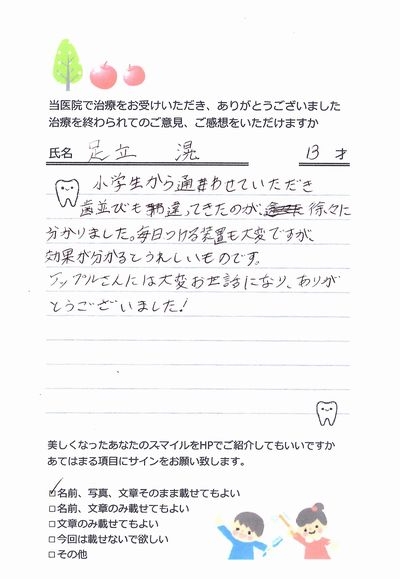 当医院で治療をお受けいただき、ありがとうございました
治療を終わられてのご意見、ご感想をいただけますか
氏名 足立 滉 13 才
小学生から通わせていただき
歯並びも違ってきたのが、徐々に
分かりました。毎日つける装置も大変ですが、
効果が分かるとうれしいものです。
アップルさんには大変お世話になり、ありが
とうございました!
美しくなったあなたのスマイルをHPでご紹介してもいいですか
あてはまる項目にサインをお願い致します。
□名前、写真、文章そのまま載せてもよい
□名前、文章のみ載せてもよい
□文章のみ載せてもよい
□今回は載せないで欲しい
□その他